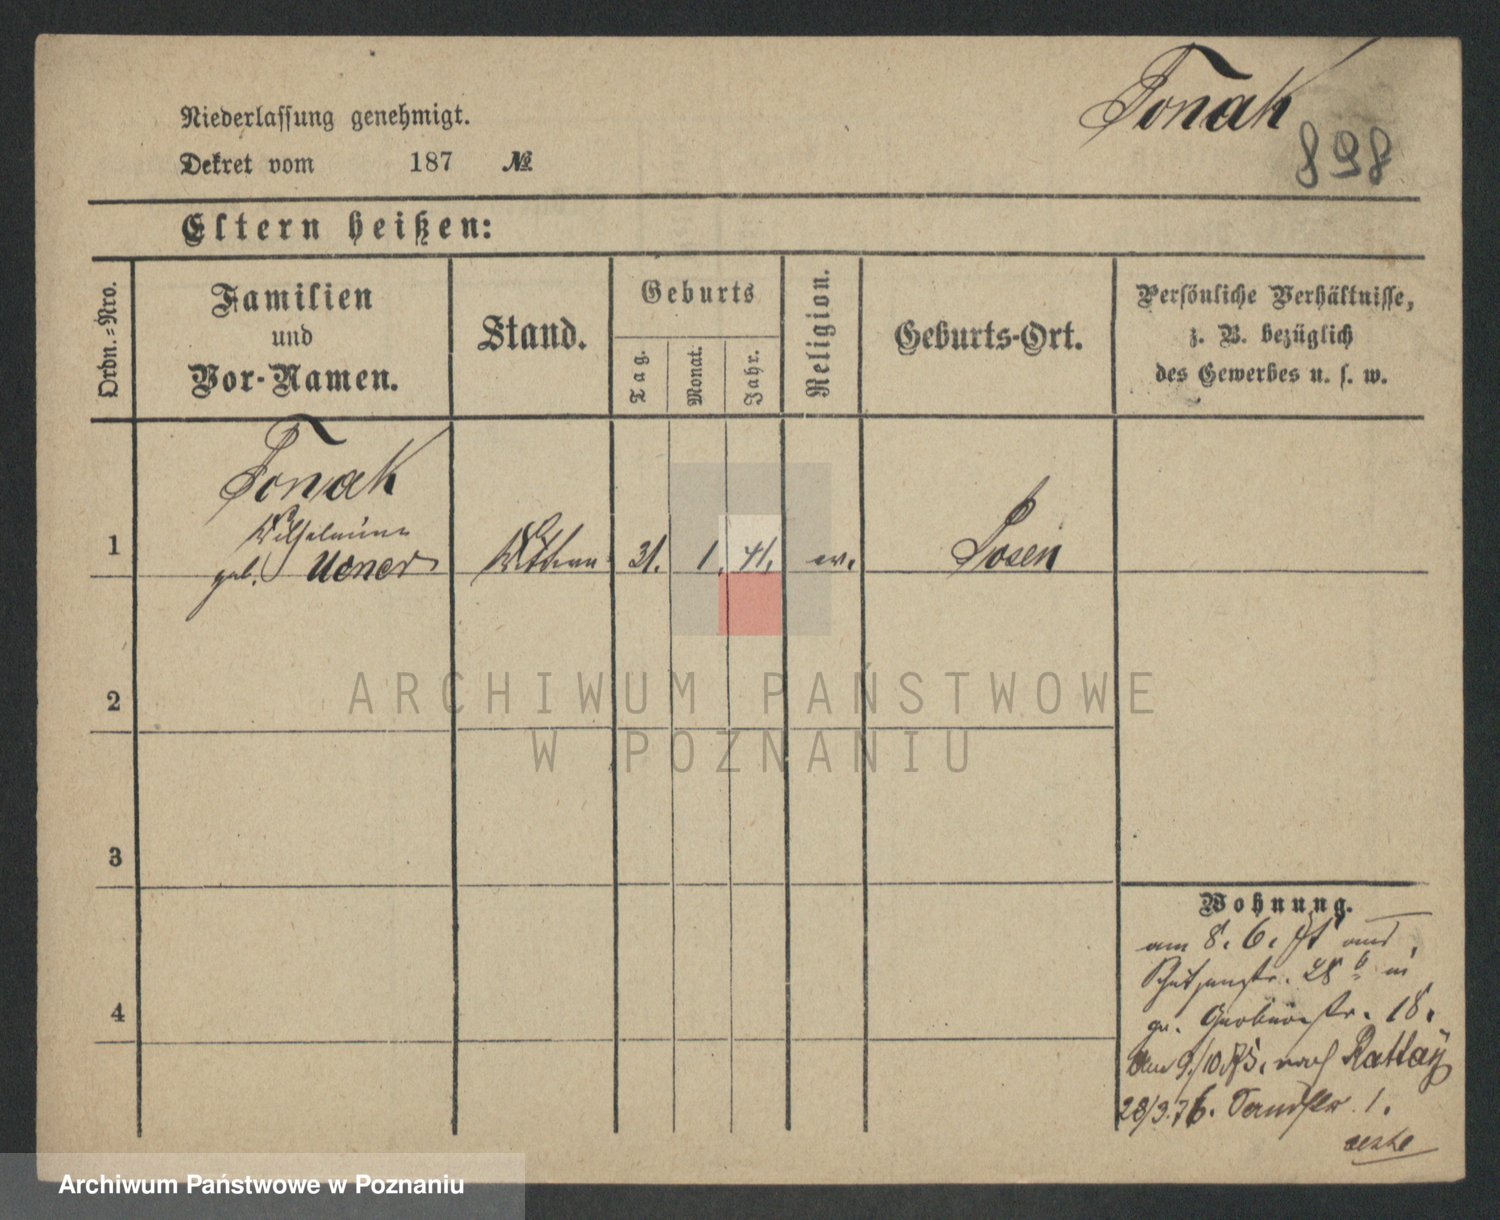 Tonak
898
Niederlassung genehmigt.
Dekret vom 187 №
Eltern heißen:
Ordn.=Nro.
Familien
und
Vor-Namen.
Stand.
Geburts
Tag.
Monat.
Jahr.
Religion.
Geburts-Ort.
Persönliche Verhältnisse,
z. B. bezüglich
des Gewerbes u. s. w.
1
Tonak
Wilhelmine
geb.
31. 1. 41. ev.
Posen
2
3
4
ARCHIWUM PAŃSTWOWE
W POZNANIU
Wohnung.
am 8. 6.
Schützenstr. 28 b in
gr. Gerberstr. 18.
am 9/10 75. nach Rattay
28/3.76. Sandstr. 1.
Archiwum Państwowe w Poznaniu